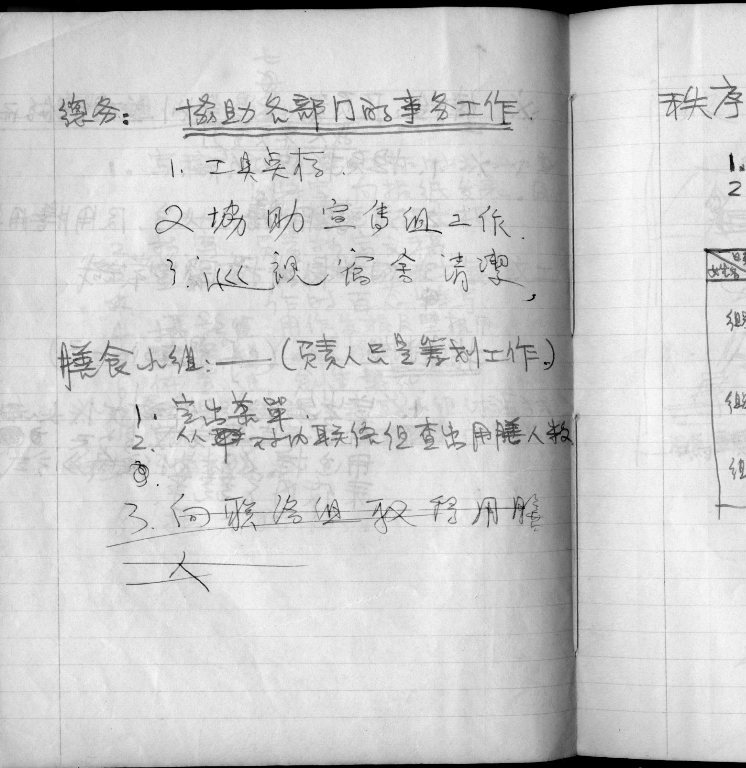 總务: 協助各部门的事务工作.
1. 工具奌存.
2 協助宣传组工作.
3. 巡視宿舍清潔,
膳食小组:——(负责人只是筹划工作.)
1. 定出菜單.
2. 从 联络组查出用膳人数
3.
3. 向联络组取得用膳
人
秩序
1.
2
组
组
组